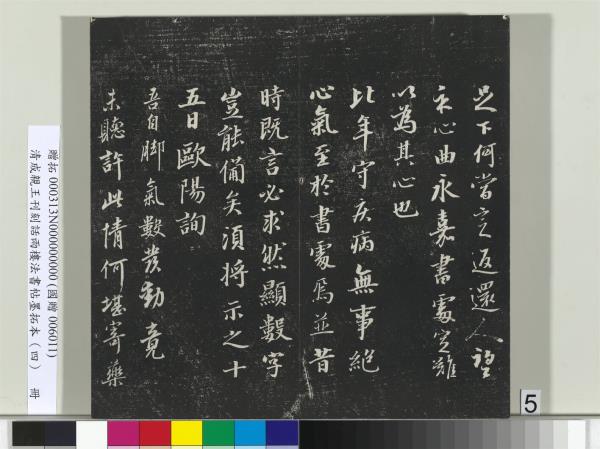 足下何當言返還人望
示心曲永嘉書處定難
以為其心也
比年守疾病無事絕
心氣至於書處焉並昔
時既言必求然顯數字
豈能備矣須將示之十
五日歐陽詢
吾自脚氣數發動竟
未聽許此情何堪寄藥
贈拓 000313N000000000 (國贈 006011)
清成親王刊刻話雨樓法書帖墨拓本（四） 冊
5